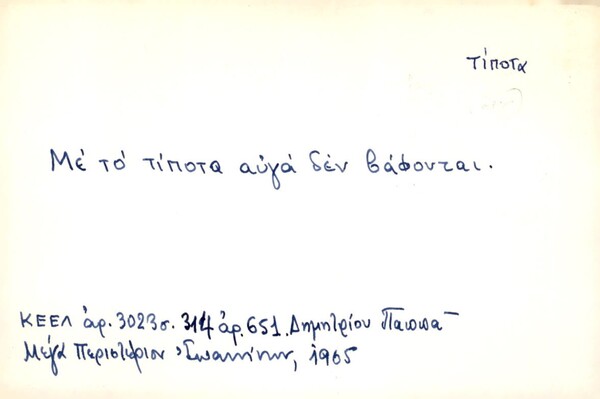 τίποτα
Μέ τό τίποτα αὐγά δέν βάφονται.
ΚΕΕΛ ἀρ. 3023 σ. 314 ἀρ. 651. Δημητρίου Παππᾶ
Μέγα Περιστέριον Ἰωαννίνων, 1965